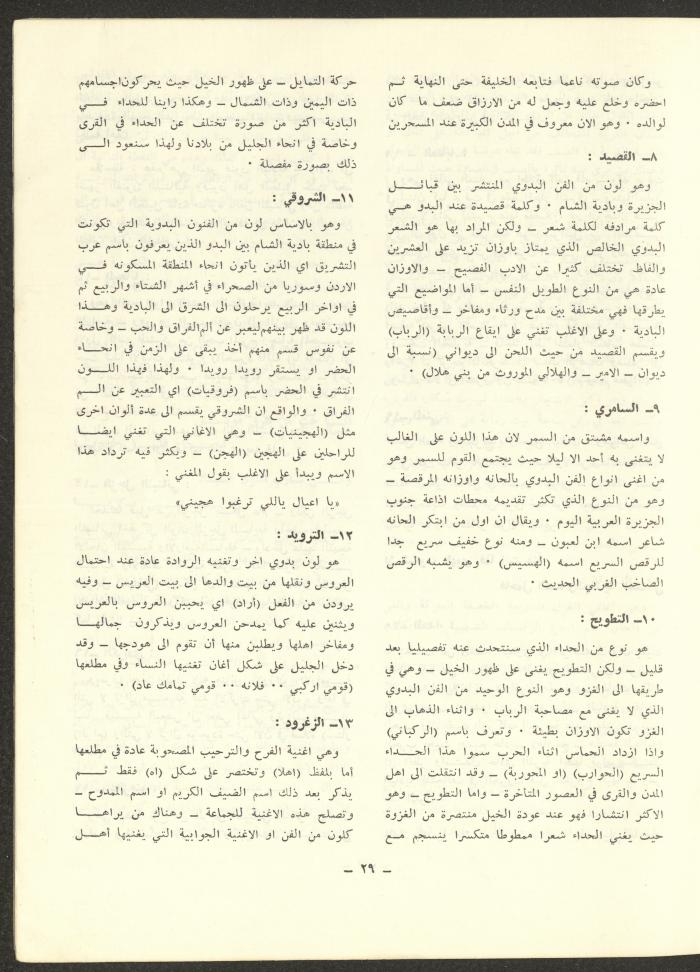 وكان صوته ناعما فتابعه الخليفة حتى النهاية ثم
احضره وخلع عليه وجعل له من الارزاق ضعف ما كان
لوالده ٠ وهو الان معروف في المدن الكبيرة عند المسحرين
٨ـ القصيد :
وهو لون من الفن البدوي المنتشر بين قبائل
الجزيرة وبادية الشام ٠ وكلمة قصيدة عند البدو هي
كلمة مرادفه لكلمة شعر ــ ولكن المراد بها هو الشعر
البدوي الخالص الذي يمتاز باوزان تزيد على العشرين
والفاظ تختلف كثيرا عن الادب الفصيح ــ والاوزان
عادة هي من النوع الطويل النفس ــ أما المواضيع التي
يطرقها فهي مختلفة بين مدح ورثاء ومفاخر ــ وأقاصيص
البادية ٠ وعلى الاغلب تغني على ايقاع الربابة (الرباب)
ويقسم القصيد من حيث اللحن الى ديواني (نسبة الى
ديوان ــ الامير ــ والهلالي الموروث من بني هلال) ٠
٩ـ السامري :
واسمه مشتق من السمر لان هذا اللون على الغالب
لا يتغنى به أحد الا ليلا حيث يجتمع القوم للسمر وهو
من اغنى انواع الفن البدوي بالحانه واوزانه المرقصة ــ
وهو من النوع الذي تكثر تقديمه محطات اذاعة جنوب
الجزيرة العربية اليوم ٠ ويقال ان اول من ابتكر الحانه
شاعر اسمه ابن لعبون ــ ومنه نوع خفيف سريع جدا
للرقص السريع اسمه (الهسيس) ٠ وهو يشبه الرقص
الصاخب الغربي الحديث ٠
١٠ـ التطويح :
هو نوع من الحداء الذي سنتحدث عنه تفصيليا بعد
قليل ــ ولكن التطويح يغنى على ظهور الخيل ــ وهي في
طريقها الى الغزو وهو النوع الوحيد من الفن البدوي
الذي لا يغنى مع مصاحبة الرباب ٠ واثناء الذهاب الى
الغزو تكون الاوزان بطيئة ٠ وتعرف باسم (الركباني)
واذا ازداد الحماس اثناء الحرب سموا هذا الحداء
السريع (الحوارب) (او المحوربة) ــ وقد انتقلت الى اهل
المدن والقرى في العصور المتأخرة ــ واما التطويح ــ وهو
الاكثر انتشارا فهو عند عودة الخيل منتصرة من الغزوة
حيث يغني الحداء شعرا ممطوطا متكسرا ينسجم مع
حركة التمايل ــ على ظهور الخيل حيث يحركون اجسامهم
ذات اليمين وذات الشمال ــ وهكذا راينا للحداء في
البادية اكثر من صورة تختلف عن الحداء في القرى
وخاصة في انحاء الجليل من بلادنا ولهذا سنعود الى
ذلك بصورة مفصلة ٠
١١ـ الشروقي :
وهو بالاساس لون من الفنون البدوية التي تكونت
في منطقة بادية الشام بين البدو الذين يعرفون باسم عرب
التشريق اي الذين يأتون انحاء المنطقة المسكونه في
الاردن وسوريا من الصحراء في أشهر الشتاء والربيع ثم
في اواخر الربيع يرحلون الى الشرق الى البادية وهذا
اللون قد ظهر بينهم ليعبر عن ألم الفراق والحب ــ وخاصة
عن نفوس قسم منهم أخذ يبقى على الزمن في انحاء
الحضر او يستقر رويدا رويدا ٠ ولهذا فهذا اللون
انتشر في الحضر باسم (فروقيات) اي التعبير عن الم
الفراق ٠ والواقع ان الشروقي يقسم الى عدة ألوان اخرى
مثل (الهجينيات) ــ وهي الاغاني التي تغني ايضا
للراحلين على الهجين (الهجن) ــ ويكثر فيه ترداد هذا
الاسم ويبدأ على الاغلب بقول المغني :
«يا اعيال ياللي ترغبوا هجيني»
١٢ـ الترويد :
هو لون بدوي اخر وتغنيه الروادة عادة عند احتمال
العروس ونقلها من بيت والدها الى بيت العريس ــ وفيه
يرودن من الفعل (أراد) اي يحببن العروس بالعريس
ويثنين عليه كما يمدحن العروس ويذكرون جمالها
ومفاخر اهلها ويطلبن منها أن تقوم الى هودجها ــ وقد
دخل الجليل على شكل أغان تغنيها النساء وفي مطلعها
(قومي اركبي ٠٠ فلانه ٠٠ قومي تمامك عاد) ٠
١٣ـ الزغرود :
وهي اغنية الفرح والترحيب المصحوبة عادة في مطلعها
أما بلفظ (اهلا) وتختصر على شكل (اه) فقط ثم
يذكر بعد ذلك اسم الضيف الكريم او اسم الممدوح ــ
وتصلح هذه الاغنية للجماعة ــ وهناك من يراها
كلون من الفن او الاغنية الجوابية التي يغنيها أهل
ــ ٢٩ ــ